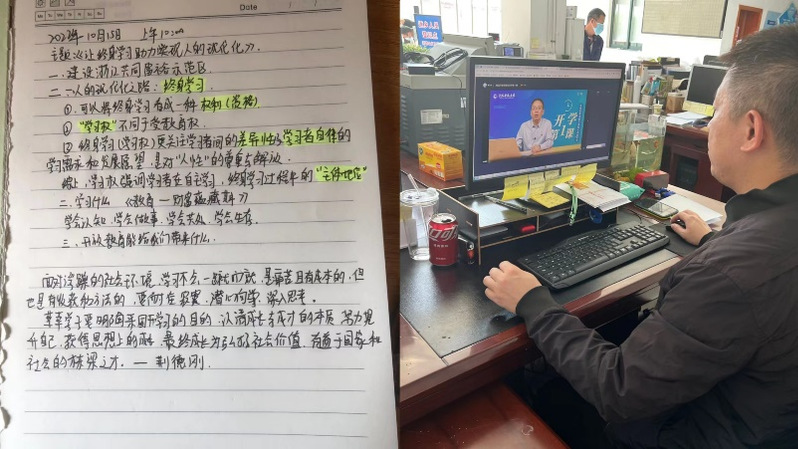 Date
2023年10月15日 上午10:00
主题:《让终身学习助力实现人的现代化》.
一.建设浙江共同富裕示范区
二.人的现代化之路:终身学习
①.可以将终身学习看成一种权利(资格)
①"学习权"不同于受教育权.
② 终身学习(学习权)更关注学习者间的差异性及学习者自体的
学习需求和发展愿望,是对"人性"的尊重与解放.
学习权强调学习者在自主学习,终身学习过程中的"主体地位"
二.学习什么 《教育—财富蕴藏其中》
学会认知,学会做事,学会共处,学会生存.
三.开放教育能给我们带来什么.
面对浮躁的社会环境,学习不会一蹴而就,是痛苦且有成本的,但
也是有收获和方法的,要耐住寂寞,潜心向学,深入思考.
莘莘学子要明确来国开学习的目的,认清成长与成才的本质,努力提
升自己,获得思想上的,最终成长为社会价值,有益于国家和
社会的栋梁之才.—荆德刚
开学
第1课